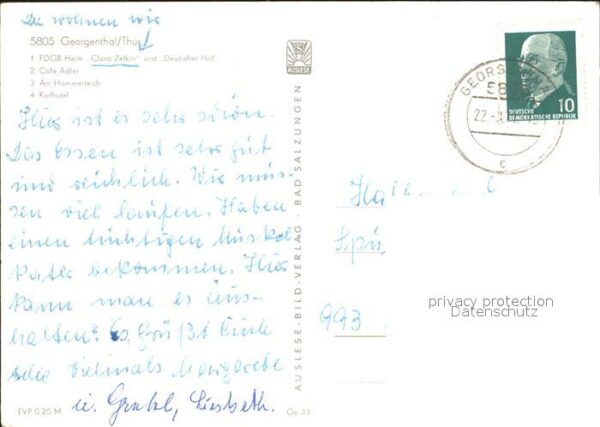 Da wohnen wir
5805 Georgenthal/Thür.
1 FDGB-Heim "Clara Zetkin" und "Deutscher Hof"
2 Cafe Adler
3 Am Hammerteich
4 Kurhotel
Hier ist es sehr schön.
Das Essen ist sehr gut
und reichlich. Wir müs-
sen viel laufen. Haben
einen tüchtigen Muskel
kater bekommen. Hier
kann man es aus-
halten. Es grüßt Euch
alle vielmals Margarete
u. Gretel, Liesbeth.
EVP 0,20 M
Ge 33
AUSLESE
AUSLESE-BILD-VERLAG · BAD SALZUNGEN
GEORGEN
58
22.
c
10
DEUTSCHE
DEMOKRATISCHE REPUBLIK
993
privacy protection
Datenschutz